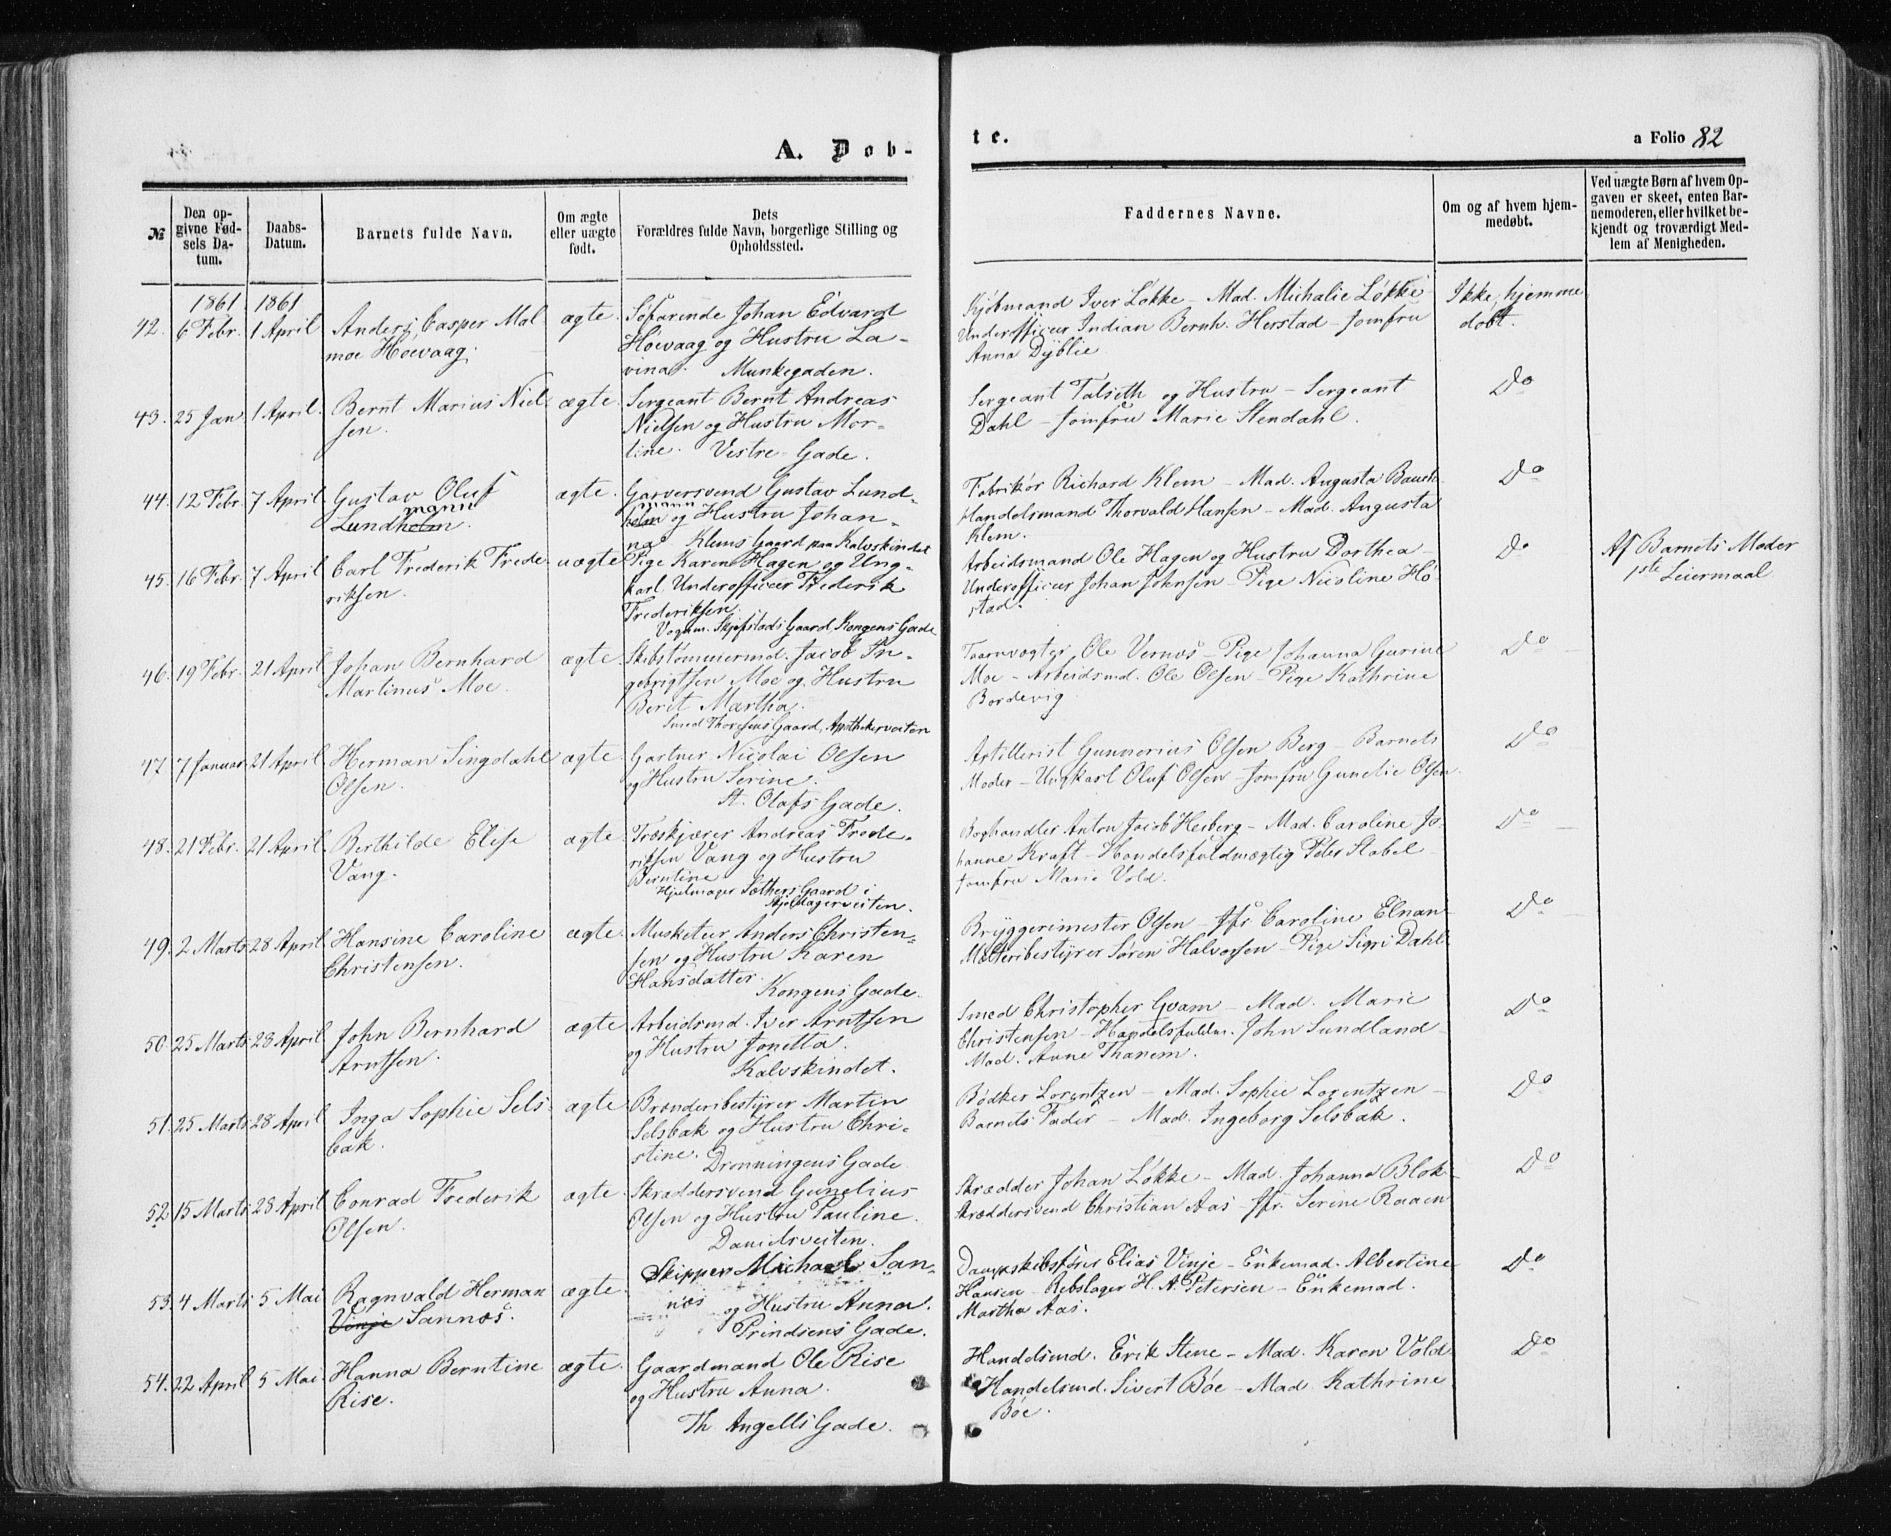 A. Døb-
te.
a Folio 82
№
Den op-
givne Fød-
sels Da-
tum.
Daabs-
Datum.
Barnets fulde Navn.
Om ægte
eller uægte
født.
Dets
Forældres fulde Navn, borgerlige Stilling og
Opholdssted.
Faddernes Navne.
Om og af hvem hjem-
medøbt.
Ved uægte Børn af hvem Op-
gaven er skeet, enten Bar-
nemoderen, eller hvilket be-
kjendt og troværdigt Med-
lem af Menigheden.
1861 1861
42. 6 Febr. 1 April Anders Casper Mal
moe Hoevaag.
ægte.
Søfarende Johan Edvard
Hoevaag og Hustru La-
vina. Munkegaden.
Kjøbmand Iver Løkke – Mad. Michalie Løkke
Underofficeer Indian Bernh. Herstad – Jomfru
Anna Dyblie
Ikke hjemme
døbt.
43. 25 Jan. 1 April. Bernt Marius Niel
sen.
ægte.
Sergeant Bernt Andreas
Nielsen og Hustru Mor-
tine. Vestre Gade.
Sergeant Talseth og Hustru – Sergeant
Dahl – Jomfru Marie Stendahl.
Do
44. 12 Febr. 7 April Gustav Oluf
mann
Lundholm.
ægte.
Garversvend Gustav Lund-
mann
holm og Hustru Johan-
na. Klems Gaard paa Kalvskindet
Fabrikør Richard Klem – Mad. Augusta Bauch
Handelsmand Thorvald Hansen – Mad. Augusta
Klem.
Do
45. 16 Febr. 7 April Carl Frederik Frede
riksen.
uægte
Pige Karen Hagen og Ung-
karl Underofficeer Frederik
Frederiksen.
Vognm. Skjefstads Gaard, Kongens Gade
Arbeidsmand Ole Hagen og Hustru Dorthea –
Underofficeer Johan Johnsen – Pige Nicoline Ho
stad.
Do
Af Barnets Moder
1ste Leiermaal
46. 19 Febr. 21 April Johan Bernhard
Martinus Moe.
ægte
Skibstømmermd. Jacob In-
gebrigtsen Moe og Hustru
Berit Martha.
Smed Thoresens Gaard, Apothekerveiten
Taarnvægter Ole Vernes – Pige Johanna Gurine
Moe – Arbeidsmd. Ole Olsen – Pige Kathrine
Bordevig
Do
47. 7 Januar 21 April Herman Singdahl
Olsen.
ægte.
Gartner Nicolai Olsen
og Hustru Serine.
St. Olafs Gade.
Artillerist Gunnerius Olsen Berg – Barnets
Moder – Ungkarl Oluf Olsen – Jomfru Gunelie Olsen.
Do
48. 21 Febr. 21 April Berthilde Elise
Vang.
ægte
Træskjærer Andreas Frede-
riksen Vang og Hustru
Berntine
Hjulmager Sæthers Gaard i
Hjulmagerveiten.
Boghandler Anton Jacob Herberg – Mad. Caroline Jo-
hanne Kraft – Handelsfuldmægtig Peter Stabel –
Jomfru Marie Vold.
Do
49. 2 Marts 28 April Hansine Caroline
Christensen.
ægte.
Musketeer Anders Christen-
sen og Hustru Karen
Hansdatter.
Kongens Gade.
Bryggerimester Olsen – Jfr. Caroline Elnan –
Mølleribestyrer Søren Halvorsen – Pige Sigri Dahl.
Do
50. 25 Marts 28 April John Bernhard
Arntsen.
ægte
Arbeidsmd. Iver Arntsen
og Hustru Jonetta.
Kalvskindet.
Smed Christopher Gvam – Mad. Marie
Christensen – Handelsfuldm. John Sundland –
Mad. Anne Thanem.
Do
51. 25 Marts 28 April Inga Sophie Sels-
bak.
ægte
Brænderibestyrer Martin
Selsbak og Hustru Chri-
stine. Dronningens Gade
Bødker Lorentzen – Mad. Sophie Lorentzen –
Barnets Fader – Mad. Ingeborg Selsbak.
Do
52. 15 Marts 28 April Conrad Frederik
Olsen.
ægte
Skræddersvend Gunelius
Olsen og Hustru Pauline.
Danielsveiten.
Skrædder Johan Løkke – Mad. Johanna Blok-
Skræddersvend Christian Aas – Jfr. Serine Raaen
Do
53. 4 Marts 5 Mai Ragnvald Herman
Vinje Sannæs.
ægte.
Skipper Michael San-
næs og Hustru Anna.
Prindsens Gade.
Dampskibsfører Elias Vinje – Enkemad. Albertine
Hansen – Rebslager H. A. Petersen – Enkemad.
Martha Aas.
Do
54. 22 April 5 Mai Hanna Berntine
Rise.
ægte.
Gaardmand Ole Rise
og Hustru Anna.
Th. Angells Gade.
Handelsmd. Erik Stene – Mad. Karen Vold
Handelsmd. Sivert Bøe – Mad. Kathrine
Bøe.
Do